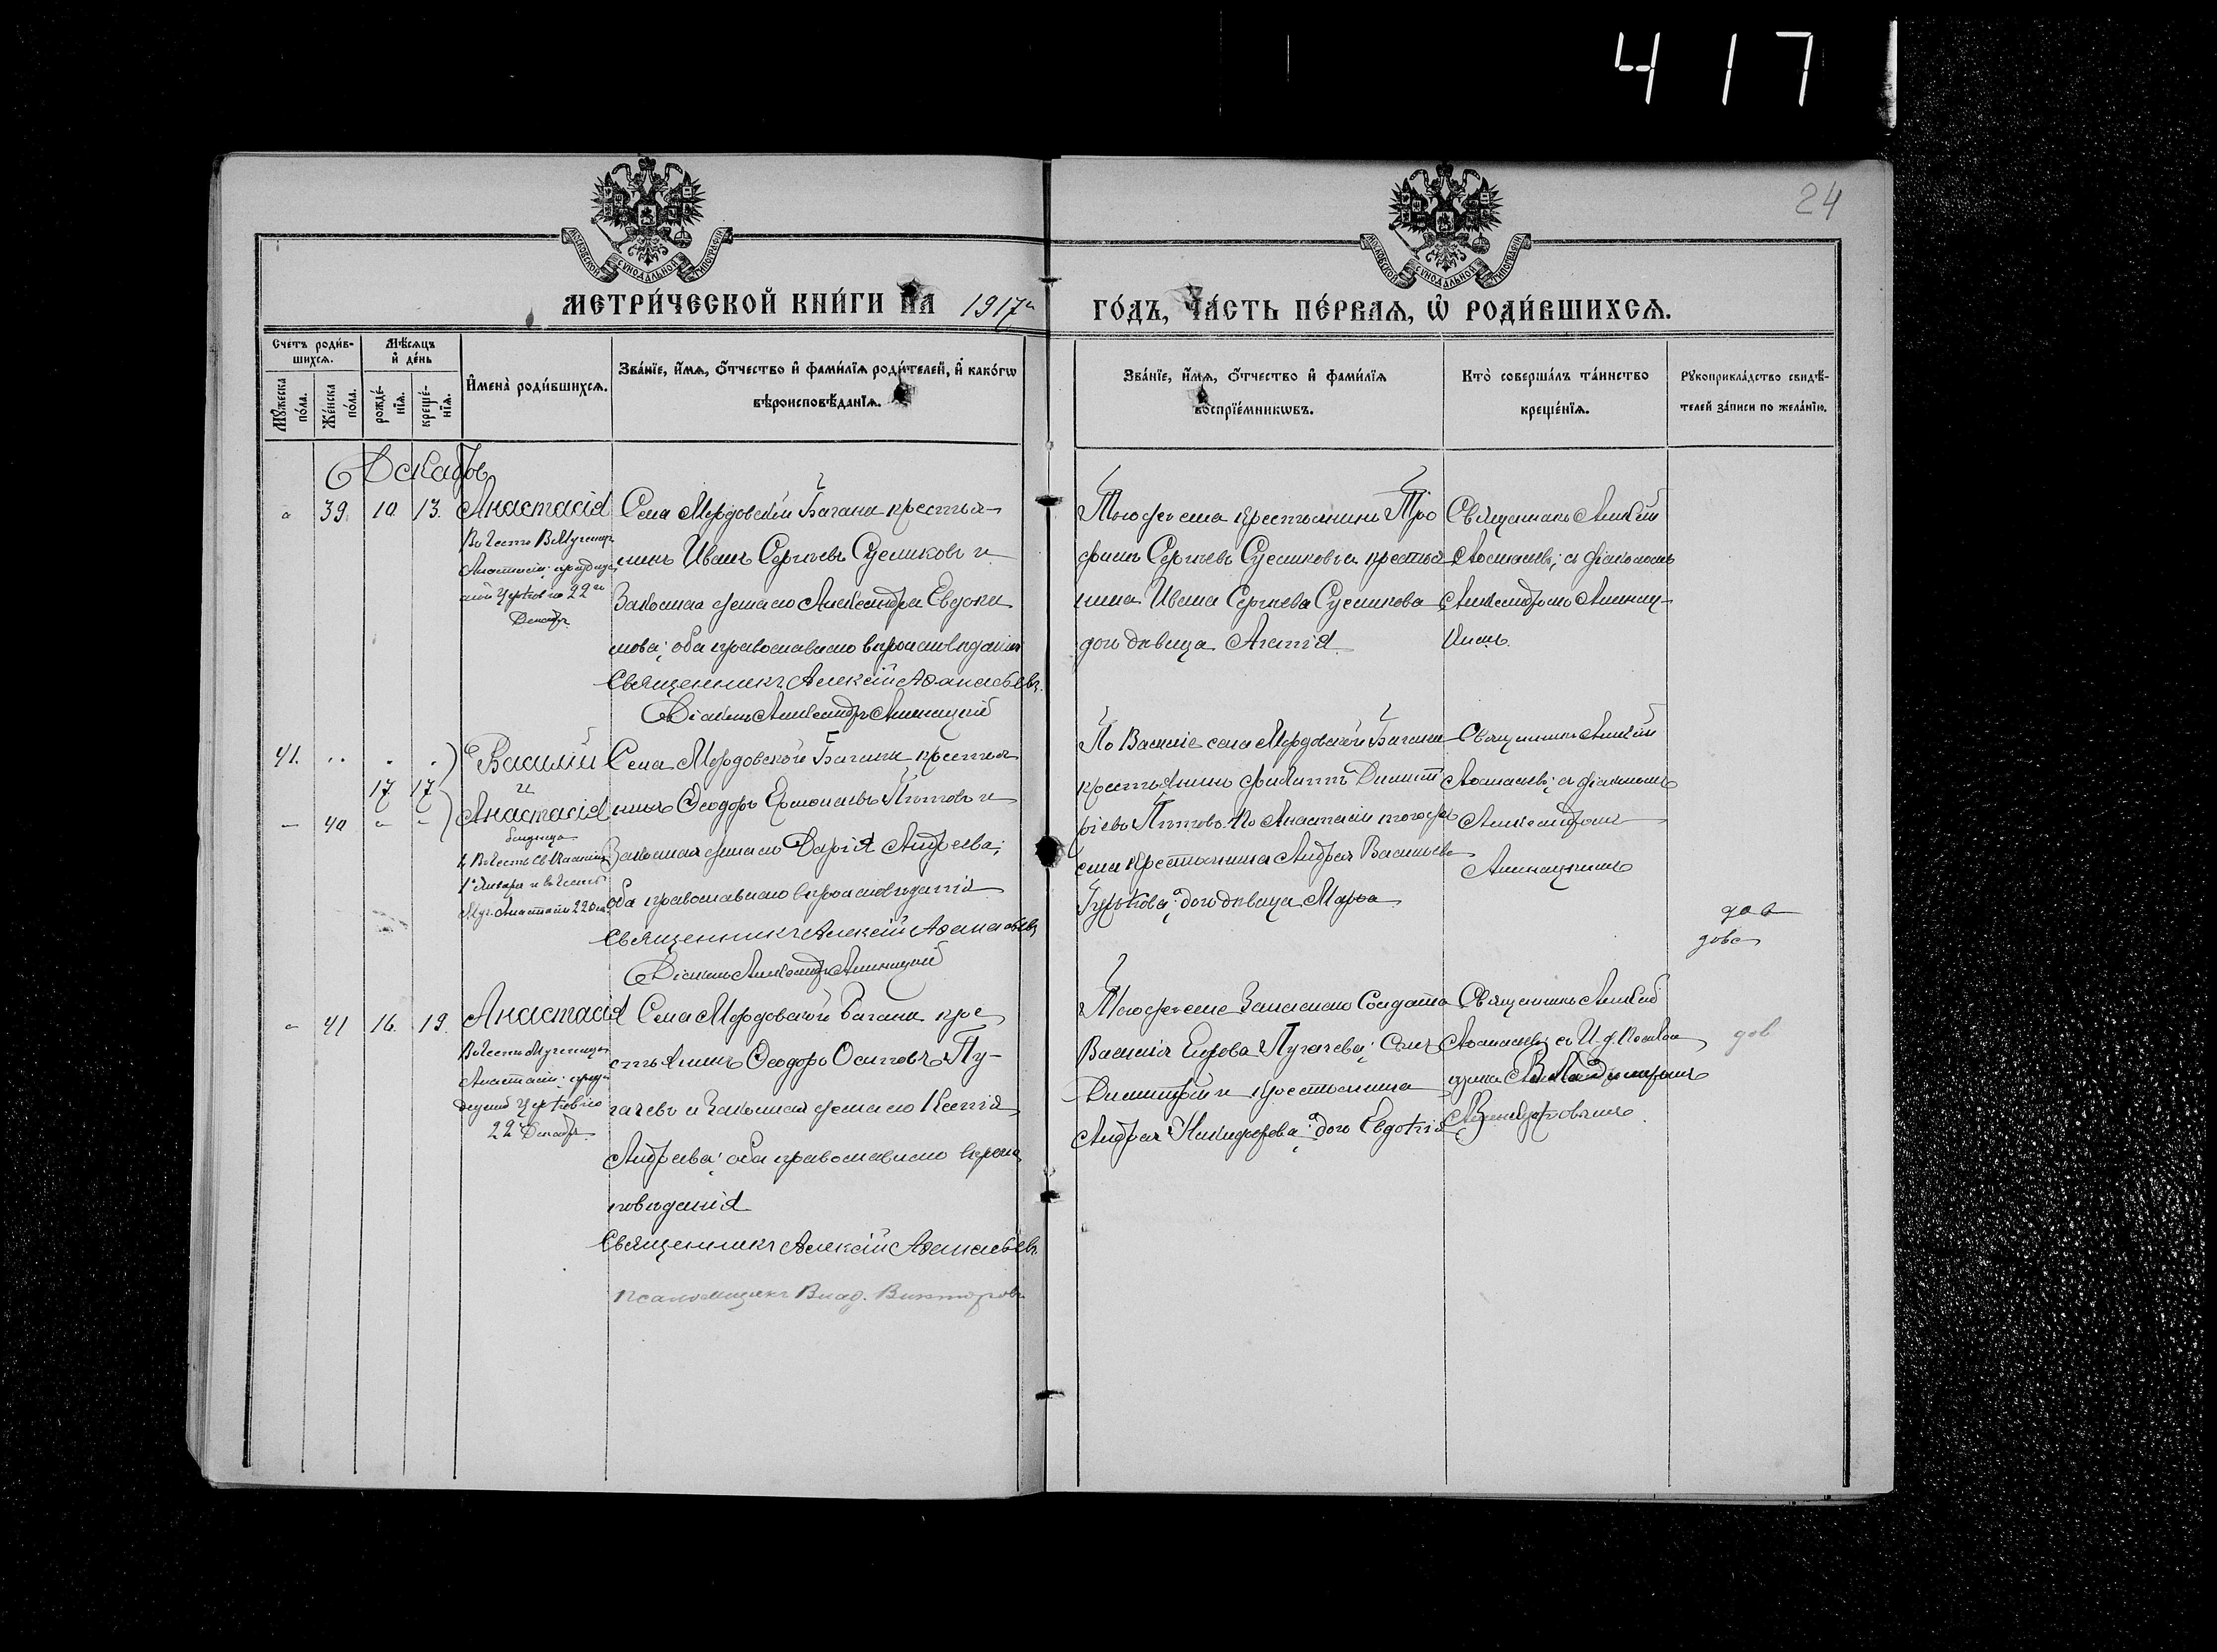 417
24
МОСКОВСКОЙ СУНОДАЛЬНОЙ ТИПОГРАФІИ
МОСКОВСКОЙ СУНОДАЛЬНОЙ ТИПОГРАФІИ
МЕТРИ́ЧЕСКОЙ КНИ́ГИ НА 1917й
ГО́ДЪ, ЧА́СТЬ ПЕ́РВАѦ, Ѡ҆ РОДИ́ВШИХСѦ.
Сче́тъ роди́в-
шихсѧ.
Мѣ́сѧцъ
и҆ де́нь
Мꙋ́жеска
по́ла.
Же́нска
по́ла.
рожде́-
нїѧ.
креще́-
нїѧ.
И҆мена̀ роди́вшихсѧ.
Зва́нїе, и҆́мѧ, ѻ҆́тчество и҆ фами́лїѧ роди́телей, и҆ како́гѡ
вѣроисповѣ́данїѧ.
Зва́нїе, и҆́мѧ, ѻ҆́тчество и҆ фами́лїѧ
воспрїе́мникѡвъ.
Кто̀ соверша́лъ та́инство
креще́нїѧ.
Рꙋкоприкла́дство свидѣ́-
телей за́писи по жела́нїю.
Декабрь
" 39. 10. 13. Анастасія
Во честь ВМучениц
Анастасіи; празднуе
22го
Декабр.
Села Мордовской Багани крестья-
нинъ Иванъ Сергѣевъ Сусликовъ и
Законная жена его Александра Евдоки
мова; оба православнаго вѣроисповѣданія
Священникъ Алексій Аѳанасьевъ.
Діаконъ Александръ
Того же села крестьянинъ Тро
фимъ Сергѣевъ Сусликовъ и крестья
нина Ивана Сергѣева Сусликова
дочь дѣвица Агапія
Священникъ Алексій
Аѳанасьевъ; съ діакономъ
Александромъ
41. 17 17 Василій
и
- 40 Анастасія
близнецы
Въ честь Св. Василія
1го Января и въ честь
Муч. Анастасіи 22 Дек.
Села Мордовской Багани крестья
нинъ Ѳеодоръ
Законная жена его Дарія Андреева;
Оба православнаго вѣроисповѣданія
Священникъ Алексій Аѳанасьевъ
Діаконъ Александръ
По Василіе села Мордовской Багани
крестьянинъ Филиппъ Димит
ріевъ По Анастасіи того же
села крестьянина Андрея Васильева
дочь дѣвица Марѳа
Священникъ Алексій
Аѳанасьевъ; съ діакономъ
Александромъ
дов
дов
" 41 16. 19. Анастасія
Во честь Мученицы
Анастасіи;
22 Декабр.
Села Мордовской Багани кре
стьянинъ Ѳеодоръ Осиповъ Пу-
гачевъ и Законная жена его Ксенія
Андреева; оба православнаго вѣроис
повѣданія
Священникъ Алексій Аѳанасьевъ
Псаломщикъ Влад. Викторовъ
Того же села Запаснаго Солдата
Василія Егорова Пугачева; Сынъ
Димитрій и крестьянина
Андрея Никифорова; дочь Евдокія
Священникъ Алексій
Аѳанасьевъ съ И. д. Псалом
щика Владиміромъ
Викторовымъ
дов